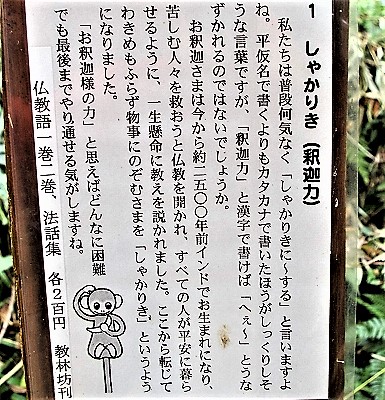 1 しゃかりき（釈迦力）
私たちは普段何気なく「しゃかりきに～する」と言いますよ
ね。平仮名で書くよりもカタカナで書いたほうがしっくりしそ
うな言葉ですが、「釈迦力」と漢字で書けば「へぇ～」とうな
ずかれるのではないでしょうか。
お釈迦さまは今から約二五〇〇年前インドでお生まれになり、
苦しむ人々を救おうと仏教を開かれ、すべての人が平安に暮ら
せるように、一生懸命に教えを説かれました。ここから転じて
わきめもふらず物事にのぞむさまを「しゃかりき」というよう
になりました。
「お釈迦様の力」と思えばどんなに困難
でも最後までやり通せる気がしますね。
仏教語一巻二巻、法話集 各２百円 教林坊刊